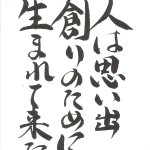 人は思い出
創りのために
生まれて来た